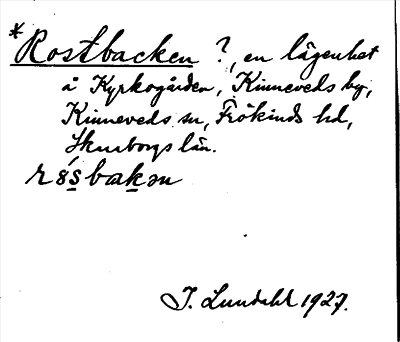 *Rostbacken ?, en lägenhet
å Kyrkogården, Kinneveds by,
Kinneveds sn, Frökinds hd,
Skarborgs län.
r ȣ́s bakən
I. Lundahl 1927.